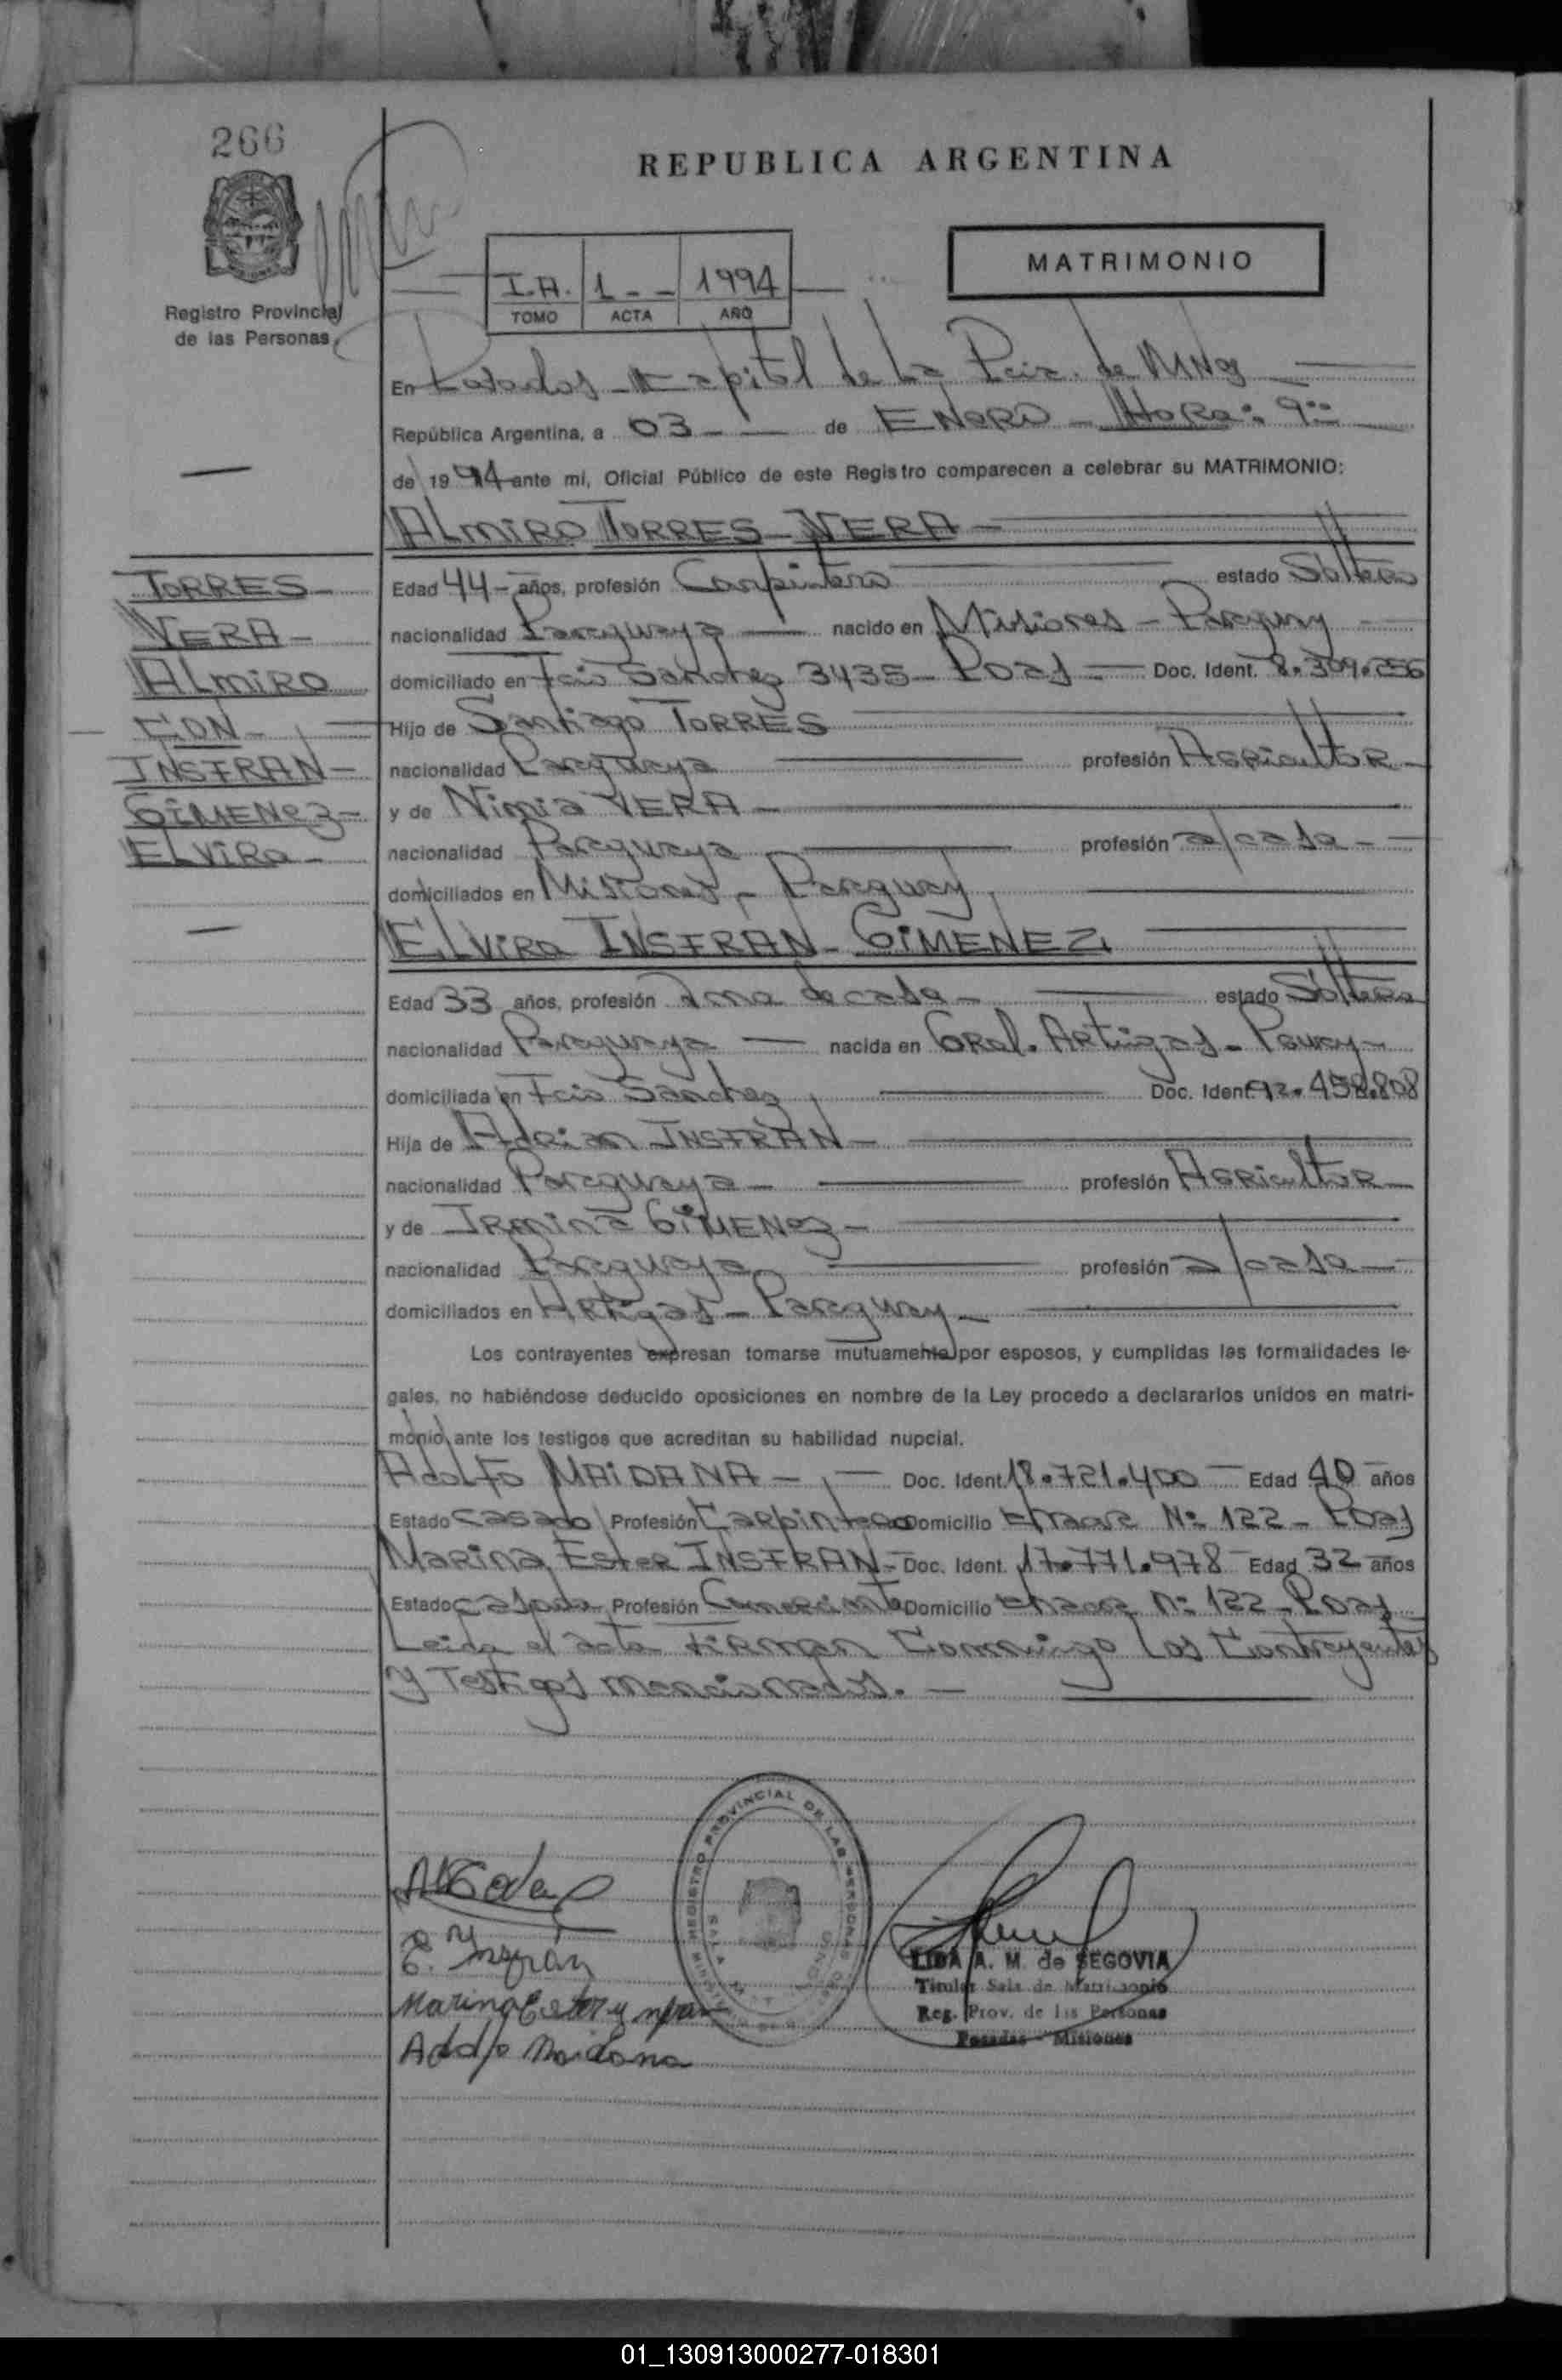 266
REPUBLICA ARGENTINA
MATRIMONIO
I.A. 1 - - 1994
TOMO ACTA AÑO
Registro Provincial
de las Personas
En Posadas - Capital de La Pcia. de Mnes
República Argentina, a 03 - - de ENERO - HORA: 9:00
de 1994 ante mi, Oficial Público de este Registro comparecen a celebrar su MATRIMONIO:
ALMIRO TORRES - VERA -
TORRES -
VERA -
ALMIRO
CON -
INSFRAN -
GIMENEZ -
ELVIRA -
Edad 44 - años, profesión Carpintero estado Soltero
nacionalidad Paraguaya - nacido en Misiones - Paraguay
domiciliado en Fcio Sanchez 3435 - Pdas - Doc. Ident. 8.309.256
Hijo de Santiago TORRES
nacionalidad Paraguaya profesión Agricultor -
y de Nimia VERA -
nacionalidad Paraguaya profesión a/casa -
domiciliados en Misiones - Paraguay
ELVIRA INSFRAN - GIMENEZ
Edad 33 años, profesión Ama de casa - estado Soltera
nacionalidad Paraguaya - nacida en Gral. Artigas - Paray -
domiciliada en Fcio Sanchez Doc. Ident. 92.458.808
Hija de Adrian INSFRAN -
nacionalidad Paraguaya - profesión Agricultor -
y de Irmina GIMENEZ -
nacionalidad Paraguaya profesión a/casa -
domiciliados en Artigas - Paraguay -
Los contrayentes expresan tomarse mutuamente por esposos, y cumplidas las formalidades le-
gales, no habiéndose deducido oposiciones en nombre de la Ley procedo a declararlos unidos en matri-
monio ante los testigos que acreditan su habilidad nupcial.
Adolfo MAIDANA - - Doc. Ident. 18.721.400 - Edad 40 años
Estado Casado Profesión Carpintero Domicilio Nº 122 - Pdas
Marina Ester INSFRAN - Doc. Ident. 17.771.978 - Edad 32 años
Estado Casada Profesión Comerciante Domicilio Nº 122 - Pdas
Leida el acta firman Conmigo los Contrayentes
y Testigos mencionados. -
REGISTRO PROVINCIAL DE LAS PERSONAS
E. Insfran
Marina Ester Insfran
Adolfo Maidana
LIDA A. M. de SEGOVIA
Titular Sala de Matrimonio
Reg. Prov. de las Personas
Posadas - Misiones
01_130913000277-018301